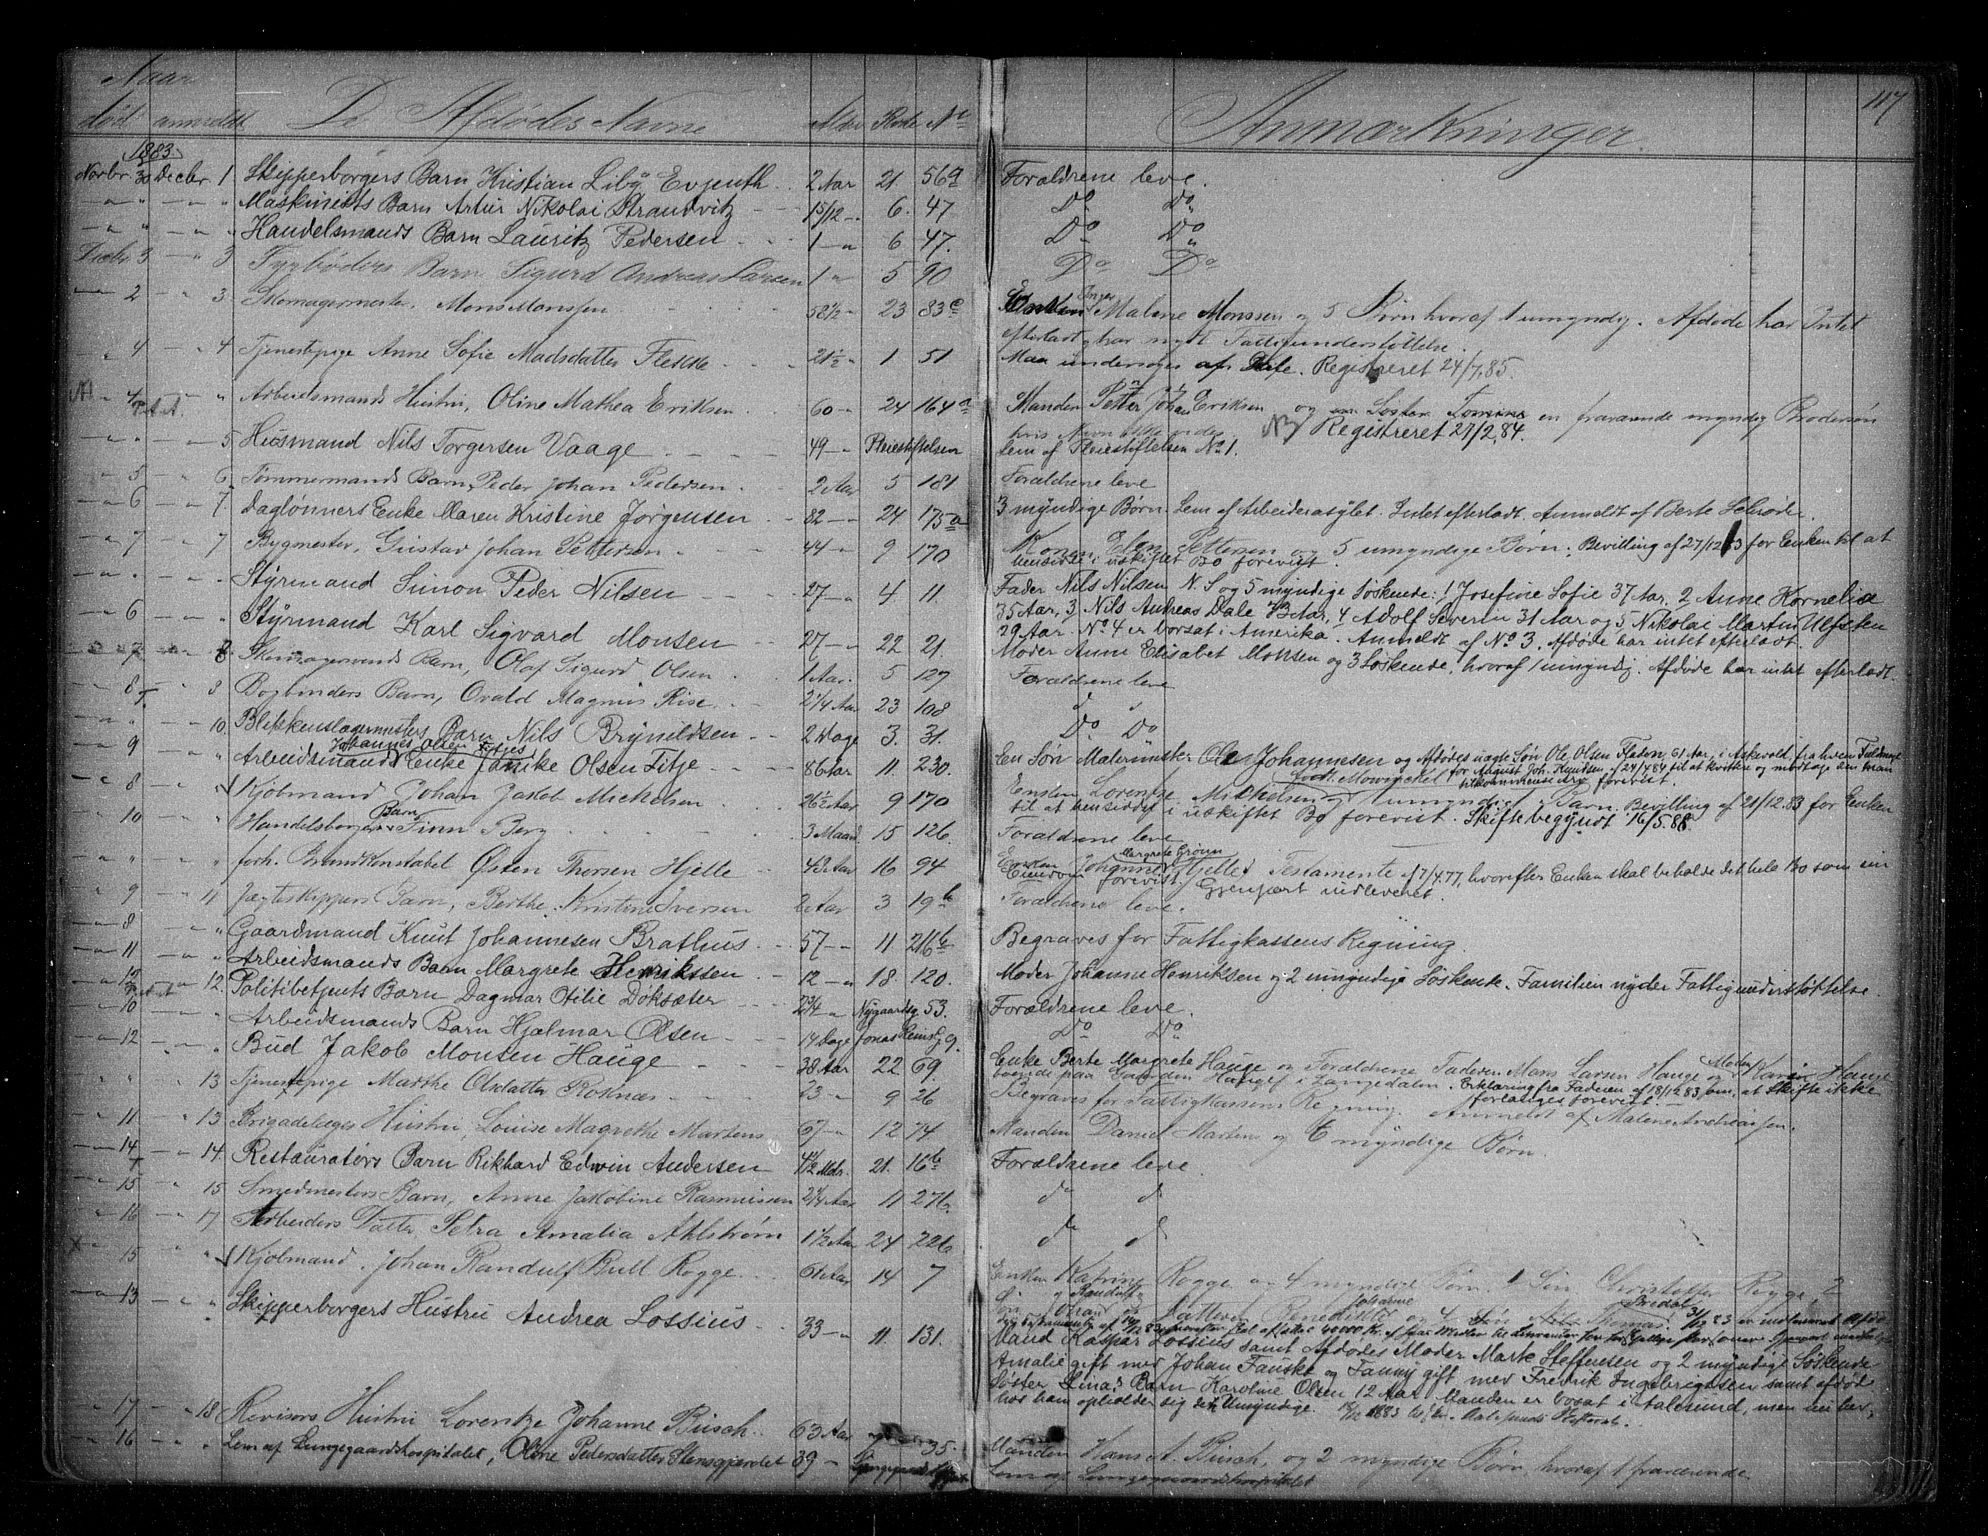 117
Naar
død anmeldt De Afdødes Navne Alder Rode No Anmærkninger.
1883
Novbr 30 Decbr 1 Skipperborgers Barn Kristian Liby Evjenth 2 Aar 21 56a Forældrene leve.
" " " Maskinists Barn Artur Nikolai Strandvitz 15/12 6. 47 Do Do
" " " Handelsmands Barn Lauritz Pedersen 1 " 6 47. Do Do
Decbr 3 " 3 Barn Sigurd Andreas Larsen 1 " 5 90 Do Do
" 2 " 3 Skomagermester Mons Monssen 58 1/2 " 23 83c Enken Inger Malene Monssen og 5 Børn hvoraf 1 umyndig. Afdøde har Intet
efterladt, har nydt Fattigunderstøttelse.
" 4 " 4 Tjenestepige Anne Sofie Madsdatter Flekke 21 1/2 " 1 51 Maa undersøges af Registreret 24/7.85.
" 4 " " Arbeidsmands Hustru, Oline Mathea Eriksen 60 " 24 164a Manden Petter Johan Eriksen og Søster en fraværende myndig Brodersøn
hvis Navn NB Registreret 27/2.84.
" " " 5 Husmand Nils Torgersen Vaage 49 " Pleiestiftelsen Lem af Pleiestiftelsen No 1.
" 5 " 6 Tømmermands Barn, Peder Johan Pedersen 2 Aar 5 181 Forældrene leve
" 6 " 7. Daglønners Enke Maren Kristine Jørgensen 82 " 24 175a 3 myndige Børn. Lem af Arbeiderasylet. Intet efterladt. Anmeldt af Berte Schrøder.
" 7 " 7 Bygmester, Gustav Johan Pettersen 44 " 9 170 Konen, Ellen Pettersen og 5 umyndige Børn. Bevilling af 27/12 83 for Enken til at
hensidde i uskiftet Bo forevist.
" " " " Styrmand Simon Peder Nilsen 27 " 4. 11. Fader Nils Nilsen N. S og 5 myndige Søskende: 1 Josefine Sofie 37 Aar, 2 Anne Kornelia
35 Aar, 3 Nils Andreas Dale 33 Aar, 4 Adolf Severin 31 Aar og 5 Nikolai Martin Ulfsten
29 Aar. No 4 er borsat i Amerika. Anmeldt af No 3. Afdøde har intet efterladt.
" 6 " " Styrmand Karl Sigvard Monsen 27 " 22 21. Moder Anne Elisabet Monsen og 3 Søskende, hvoraf 1 umyndig. Afdøde har intet efterladt.
" 7 " 8. Skomagersvends Barn, Olaf Sigurd Olsen 1 Aar. 5 127 Forældrene leve
" 8 " 8 Bogbinders Barn, Ovald Magnus Rise 2 1/4 Aar 23 108 d d
" " " 10. Blikkenslagermesters Barn Nils Brynildsen 2 Dage 3. 31. Do Do
" 9 " " Arbeidsmand Johannes Olsen Fitjes Enke Janike Olsen Fitje 86 Aar 11. 230. En Søn Matrunsk. Ole Johannesen og Afdødes uægte Søn Ole Olsen 61 Aar, i Askvold, fra hvem
for August Joh. Knudsen af 24/4 84 til at kvittere og modtage den
tilkommende Arv forevist.
" 8 " " Kjøbmand Johan Jakob Mickelsen 26 1/2 Aar 9 170 Enken Lorentze Mikkelsen og 1 umyndigt Barn. Bevilling af 21/12.83 for Enken
til at hensidde i uskiftet Bo forevist. Skifte begyndt 16/5.88.
" 10 " " Handelsborgers Barn Finn Berg 3 Maand. 15 126. Forældrene leve
" " " " forh. Brandkonstabel Østen Thorsen Hjelle 43 Aar 16 94 Enken Johanne Margrete Grønn Hjelle. Testamente af 7/4.77, hvorefter Enken skal beholde det hele Bo som sin
Eiendom forevist. Gjenpart indleveret.
" 9 " 11 Jægteskippers Barn, Berthe Kristine Iversen 2 Aar 3 19b Forældrene leve.
" 8 " " Gaardmand Knut Johannesen Brathus 57 " 11 216b Begraves for Fattigkassens Regning.
" 11 " " Arbeidsmands Barn Margrete Henrikssen 12 " 18. 120. Moder Johanne Henriksen og 2 umyndige Søskende. Familien nyder Fattigunderstøttelse.
" 12 " 12. Politibetjents Barn Dagmar Otilie Døksæter 2 3/4 " Nygaardsg 53. Forældrene leve.
" 10 " " Arbeidsmands Barn Hjalmar Olsen 14 Dage Jonas Reinsg 9. Do Do
" 12 " " Bud Jakob Monsen Hauge 38 Aar 22 69. Enke Berte Margrete Hauge og Forældrene Faderen Mons Larsen Hauge og Moder Kari Hauge
boende paa Gaarden Hauge i Langedalen. Erklæring fra Faderen af 18/12 83 om, at Skifte ikke
forlanges forevist.
" " " 13 Tjenestepige Marthe Olsdatter Roknæs 23 " 9 26 Begraves for Fattigkassens Regning. Anmeldt af Malene Andreassen.
" 11 " 13 Brigadelæges Hustru, Louise Magrethe Martens 67 " 12 74 Manden Daniel Martens og 6 myndige Børn.
" 14 " 14. Restauratørs Barn Rikhard Edwin Andersen 4 1/2 Mdr. 21. 16b Forældrene leve.
" 15 " 15 Smedmesters Barn, Anne Jakobine Rasmussen 2 1/4 Aar 11 276. d d
" 16 " 17 Arbeiders Datter, Petra Amalia Ahlstrøm 1 1/2 Aar 24 226 d d
" 15 " " Kjøbmand Johan Randulf Bull Rogge 61 Aar 14 7 Enken Katrine Rogge og 4 myndige Børn: 1 Søn Christoffer Rogge, 2
Søn Randulf Datteren Benedikte Johanne og 4 Søn Thomas Bredal
" 13 " " Skipperborgers Hustru Andrea Lossius 33 " 11. 131. Mand Kaspar Lossius samt Afdødes Moder Marte Steffensen og 2 myndige Søskende
Amalie gift med Johan Fauske og Fanny gift med Fredrik Ingebrigtsen samt afdød
Søster Linas Barn Karoline Olsen 12 Aar. Manden er bosat i Aalesund, men nu her,
hos ham opholder sig den Umyndige.
" 17 " 18 Revisors Hustru Lorentze Johanne Busch 63 Aar 35. Manden Hans A. Busch, og 2 myndige Børn, hvoraf 1 fraværende
" 16 " " Lem af Lungegaardshospitalet, Oline Pedersdatter Stensgjerdet 39 " Lem af Lungegaardshospitalet